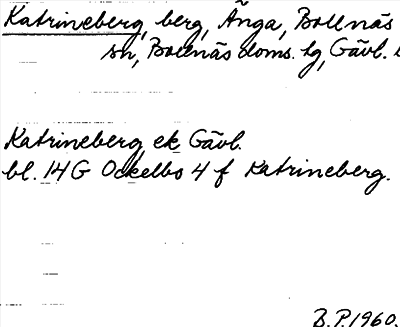 Katrineberg, berg, Änga, Bollnäs
sn, Bollnäs doms. hg, Gävl. l
Katrineberg ek Gävl.
bl. 14 G Ockelbo 4 f Katrineberg.
B.P. 1960.